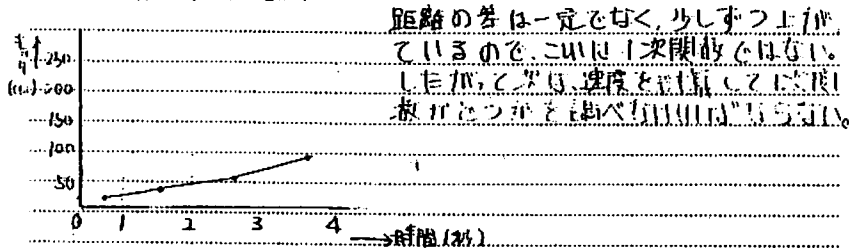 距離の差は一定でなく、少しずつ上が
ているので、これは1次関数ではない。
したがって次は、速度を計算して1次関
数かどうかを調べなければならない。
250
(cm) 200
150
100
50
0 1 2 3 4
→時間(秒)